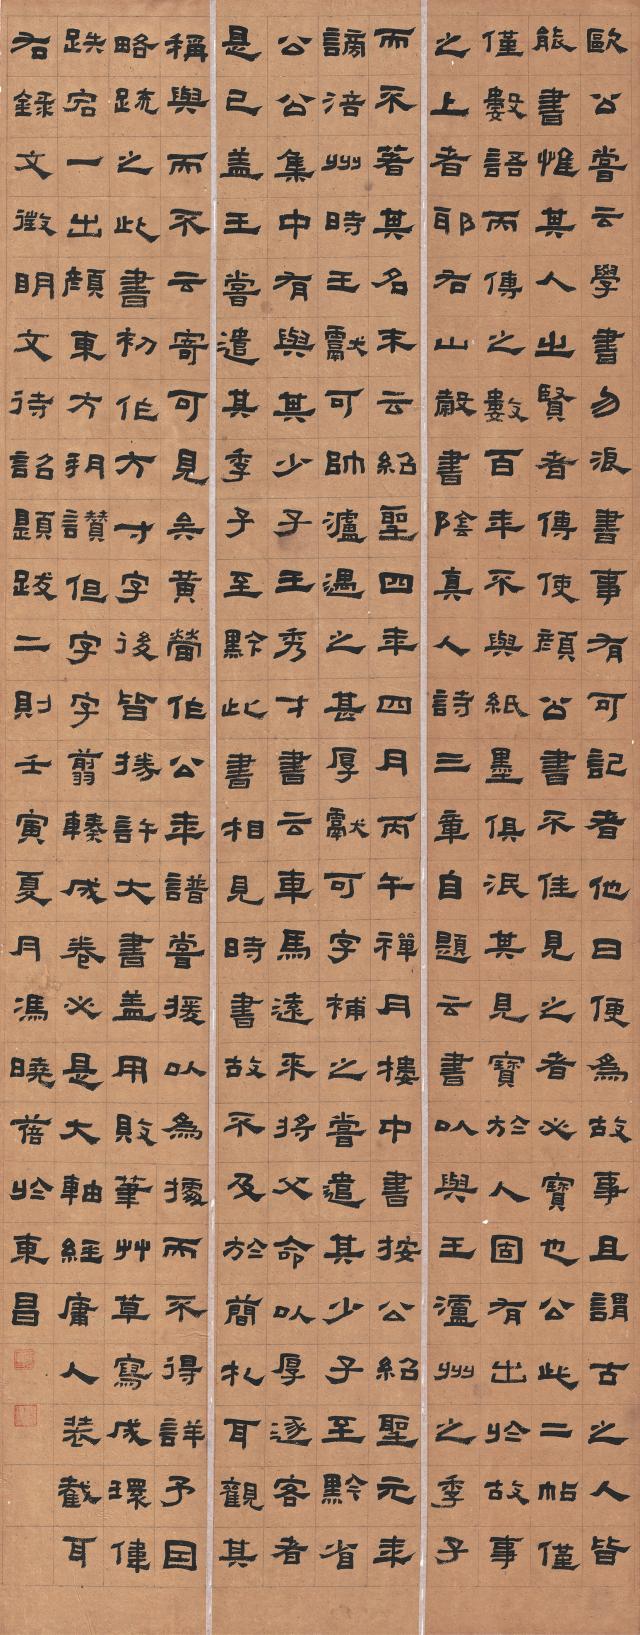 歐公嘗云學書勿浪書事有可記者他日便為故事且謂古之人皆
能書惟其人之賢者傳使顏公書不佳見之者必寶也公此二帖僅
僅數語而傳之數百年不與紙墨俱泯其見寶於人固有出於故事
之上者耶右山谷書陰真人詩三章自題云書以與王瀘州之季子
而不著其名末云紹聖四年四月丙午禪月樓中書按公紹聖元年
謫涪州時王獻可帥瀘遇之甚厚獻可字補之嘗遣其少子至黔省
公公集中有與其少子王秀才書云車馬遠來將父命以厚逐客者
是已蓋王嘗遣其季子至黔此書相見時書故不及於簡札耳觀其
稱與而不云寄可見矣黃㽦作公年譜嘗援以為據而不得詳予因
略疏之此書初作方寸字後皆捴許大書蓋用敗筆艸草寫成環偉
跌宕一出顏東方朔讚但字字翦輳成卷必是大軸經庸人裝截耳
右錄文徵明文待詔題跋二則壬寅夏月馮曉蓓於東昌